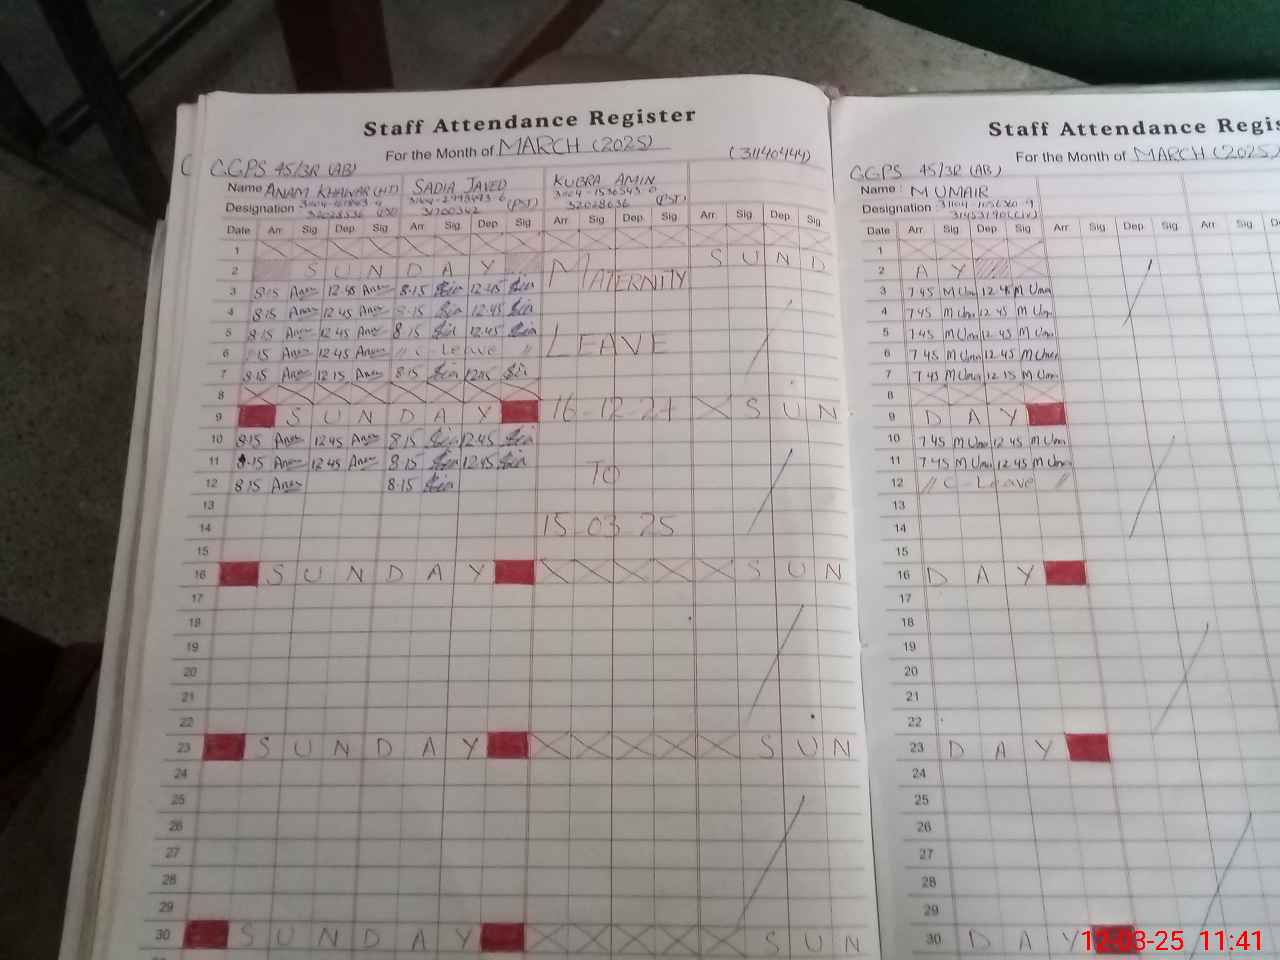 Staff Attendance Register
For the Month of MARCH (2025)
(31140444)
G.GPS 45/3R (AB)
Name ANAM KHANAR (HT) SADIA JAVED KUBRA AMIN
Designation 32028536 31700342 (PST) 32028636 (PST)
Date Arr Sig Dep Sig Arr Sig Dep Sig Arr Sig Dep Sig Arr Sig Dep Sig
1
2 S U N D A Y MATERNITY S U N D
3 8:15 Anam 12:45 Anam 8:15 12:45
4 8:15 Anam 12:45 Anam 8:15 12:45
5 8:15 Anam 12:45 Anam 8:15 12:45 LEAVE
6 8:15 Anam 12:45 Anam // C-Leave //
7 8:15 Anam 12:15 Anam 8:15 12:15
8
9 S U N D A Y 16-12-24 S U N
10 8:15 Anam 12:45 Anam 8:15 12:45
11 8:15 Anam 12:45 Anam 8:15 12:45
12 8:15 Anam 8:15 TO
13
14 15-03-25
15
16 S U N D A Y S U N
17
18
19
20
21
22
23 S U N D A Y S U N
24
25
26
27
28
29
30 S U N D A Y S U N
Staff Attendance
For the Month of MARCH (2025)
GGPS 45/3R (AB)
Name : M UMAIR
Designation
Date Arr Sig Dep Sig Arr Sig Dep Sig Arr Sig
1
2 A Y
3 7 45 M Umair 12 45 M Umair
4 7 45 M Umair 12 45 M Umair
5 7 45 M Umair 12 45 M Umair
6 7 45 M Umair 12 45 M Umair
7 7 45 M Umair 12 15 M Umair
8
9 D A Y
10 7 45 M Umair 12 45 M Umair
11 7 45 M Umair 12 45 M Umair
12 // C-Leave //
13
14
15
16 D A Y
17
18
19
20
21
22
23 D A Y
24
25
26
27
28
29
30 D A Y
12-03-25 11:41